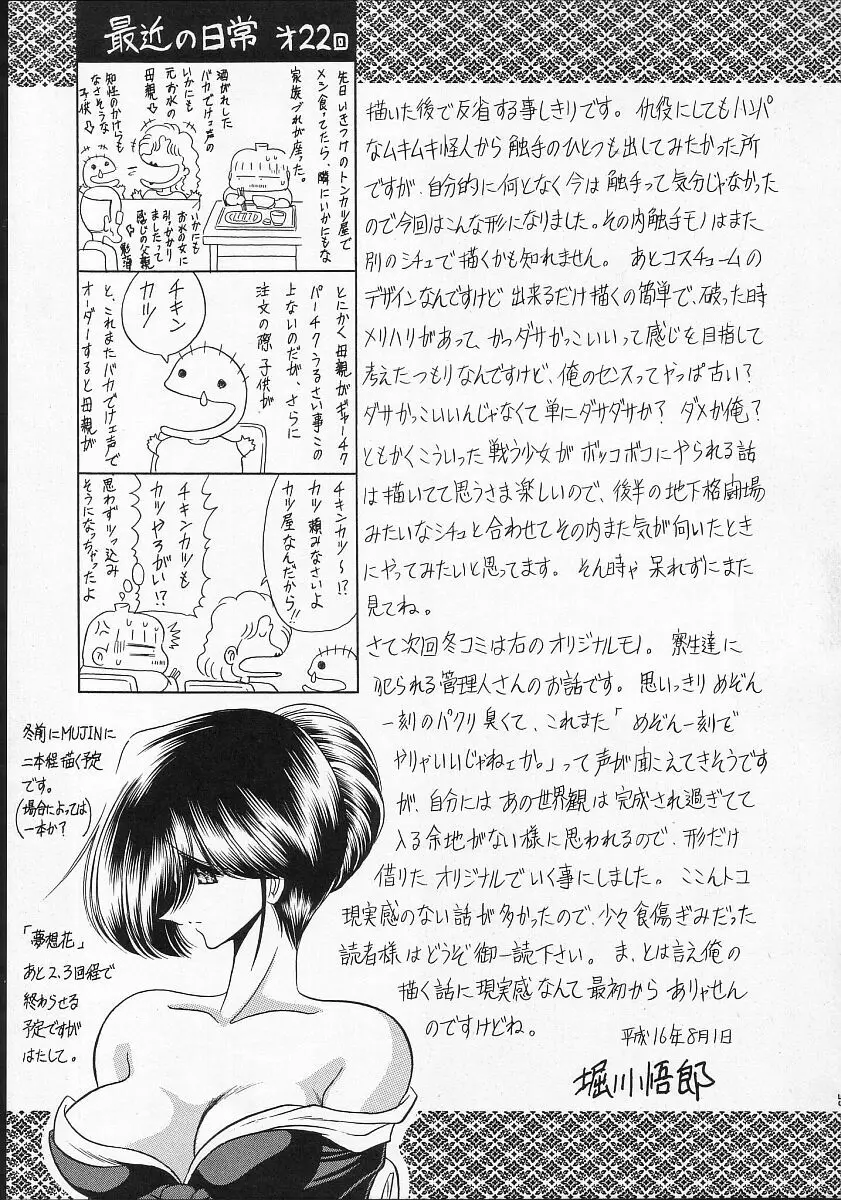 最近の日常 オ22回
先日いきつけのトンカツ屋で
メシ食ってたら、隣にいかにもな
家族づれが座った。
酒がれした
バカでけェ声の
いかにも
元お水の
母親
知性のかけらも
なさそうな
子供
いかにも
お水の女に
引っかかり
ましたって
感じの父親
とにかく母親がギャーチク
パーチクうるさい事この
上ないのだが、さらに
注文の際 子供が
チキン
カツ
と、これまたバカでけェ声で
オーダーすると母親が
チキンカツ〜!?
カツ頼みなさいよ
カツ屋なんだから!!
チキンカツも
カツやろがい!?
思わずツっ込み
そうになっちゃったよ
描いた後で反省する事しきりです。仇役にしてもハンパ
なムキムキ怪人から触手のひとつも出してみたかった所
ですが、自分的に何となく今は触手って気分じゃなかった
ので今回はこんな形になりました。その内触手モノはまた
別のシチュで描くかも知れません。あとコスチュームの
デザインなんですけど 出来るだけ描くの簡単で、破った時
メリハリがあって、かつダサかっこいいって感じを目指して
考えたつもりなんですけど、俺のセンスってやっぱ古い?
ダサかっこいいんじゃなくて単にダサダサか? ダメか俺?
ともかくこういった戦う少女がボッコボコにやられる話
は描いてて思うさま楽しいので、後半の地下格闘場
みたいなシチュと合わせてその内また気が向いたとき
にやってみたいと思ってます。そん時ゃ呆れずにまた
見てね。
さて次回冬コミは右のオリジナルモノ。寮生達に
犯られる管理人さんのお話です。思いっきりめぞん
一刻のパクリ臭くて、これまた「めぞん一刻で
やりゃいいじゃねェか。」って声が聞こえてきそうです
が、自分にはあの世界観は完成され過ぎてて
入る余地がない様に思われるので、形だけ
借りたオリジナルでいく事にしました。ここんトコ
現実感のない話が多かったので、少々食傷ぎみだった
読者様はどうぞ御一読下さい。ま、とは言え俺の
描く話に現実感なんて最初からありゃせん
のですけどね。
平成16年8月1日
堀川悟郎
冬前にMUJINに
二本程描く予定
です。
(場合によっては
一本か?)
「夢想花」
あと2、3回程で
終わらせる
予定ですが
はたして。